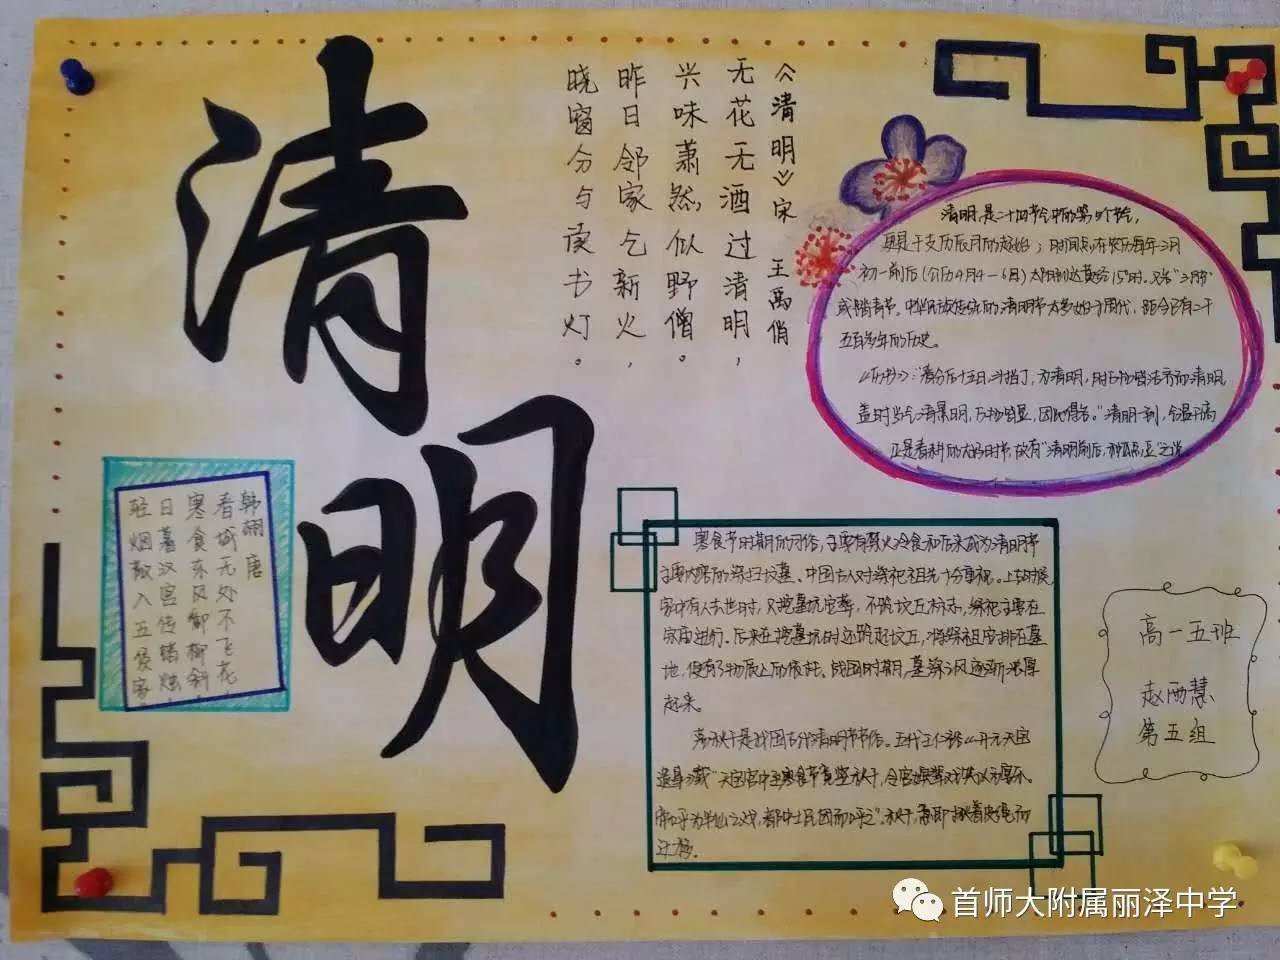 清明
《清明》宋 王禹俏
无花无酒过清明，
兴味萧然似野僧。
昨日邻家乞新火，
晓窗分与读书灯。
清明,是二十四节气中的第5个节气,
更是干支历辰月的起始；时间点在农历每年三月
初一前后(公历4月4—6日)太阳到达黄经15°时。又名"三月节"
或踏青节。中华民族传统的清明节大约始于周代，距今已有二千
五百多年的历史。
《历书》："春分后十五日,斗指丁，为清明，时万物皆洁齐而清明，
盖时当气清景明,万物皆显，因此得名。"清明一到，气温升高
正是春耕的大好时节,故有"清明前后,种瓜点豆"之说。
韩翃 唐
看城无处不飞花
寒食东风御柳斜
日暮汉宫传蜡烛
轻烟散入五侯家
寒食节时期的习俗，主要有禁火冷食和后来成为清明节
主要内容的祭扫坟墓、中国古人对祭祀祖先十分重视。上古时候，
家中有人去世时，只挖墓坑安葬，不筑坟丘标志，祭祀主要在
宗庙进行。后来在挖墓坑时还筑起坟丘，将祭祖安排在墓
地，便有了物质上的依托、战国时期，墓祭之风逐渐浓厚
起来。
荡秋千是我国古代清明节节俗。五代王仁裕《开元天宝
遗事》载"天宝宫中至寒食节竞竖秋千，令宫嫔辈戏笑以为宴乐。
帝呼为半仙之戏，都中士民因而呼之"。秋千，意即揪着皮绳而
迁移。
高一五班
赵雨慧
第五组
首师大附属丽泽中学